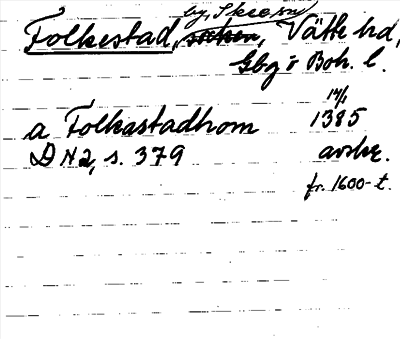 by, Skee sn
Folkestad, socken, Vätte hd,
Gbg o Boh. l.
a Folkastadhom 14/1 1385
DN 2, s. 379 avskr.
fr. 1600-t.